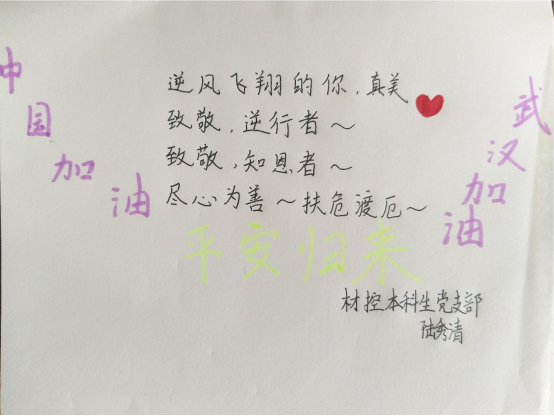 中国加油
逆风飞翔的你,真美
致敬,逆行者~
致敬,知恩者~
尽心为善~扶危渡厄~
武汉加油
平安归来
材控本科生党支部
陆秀清